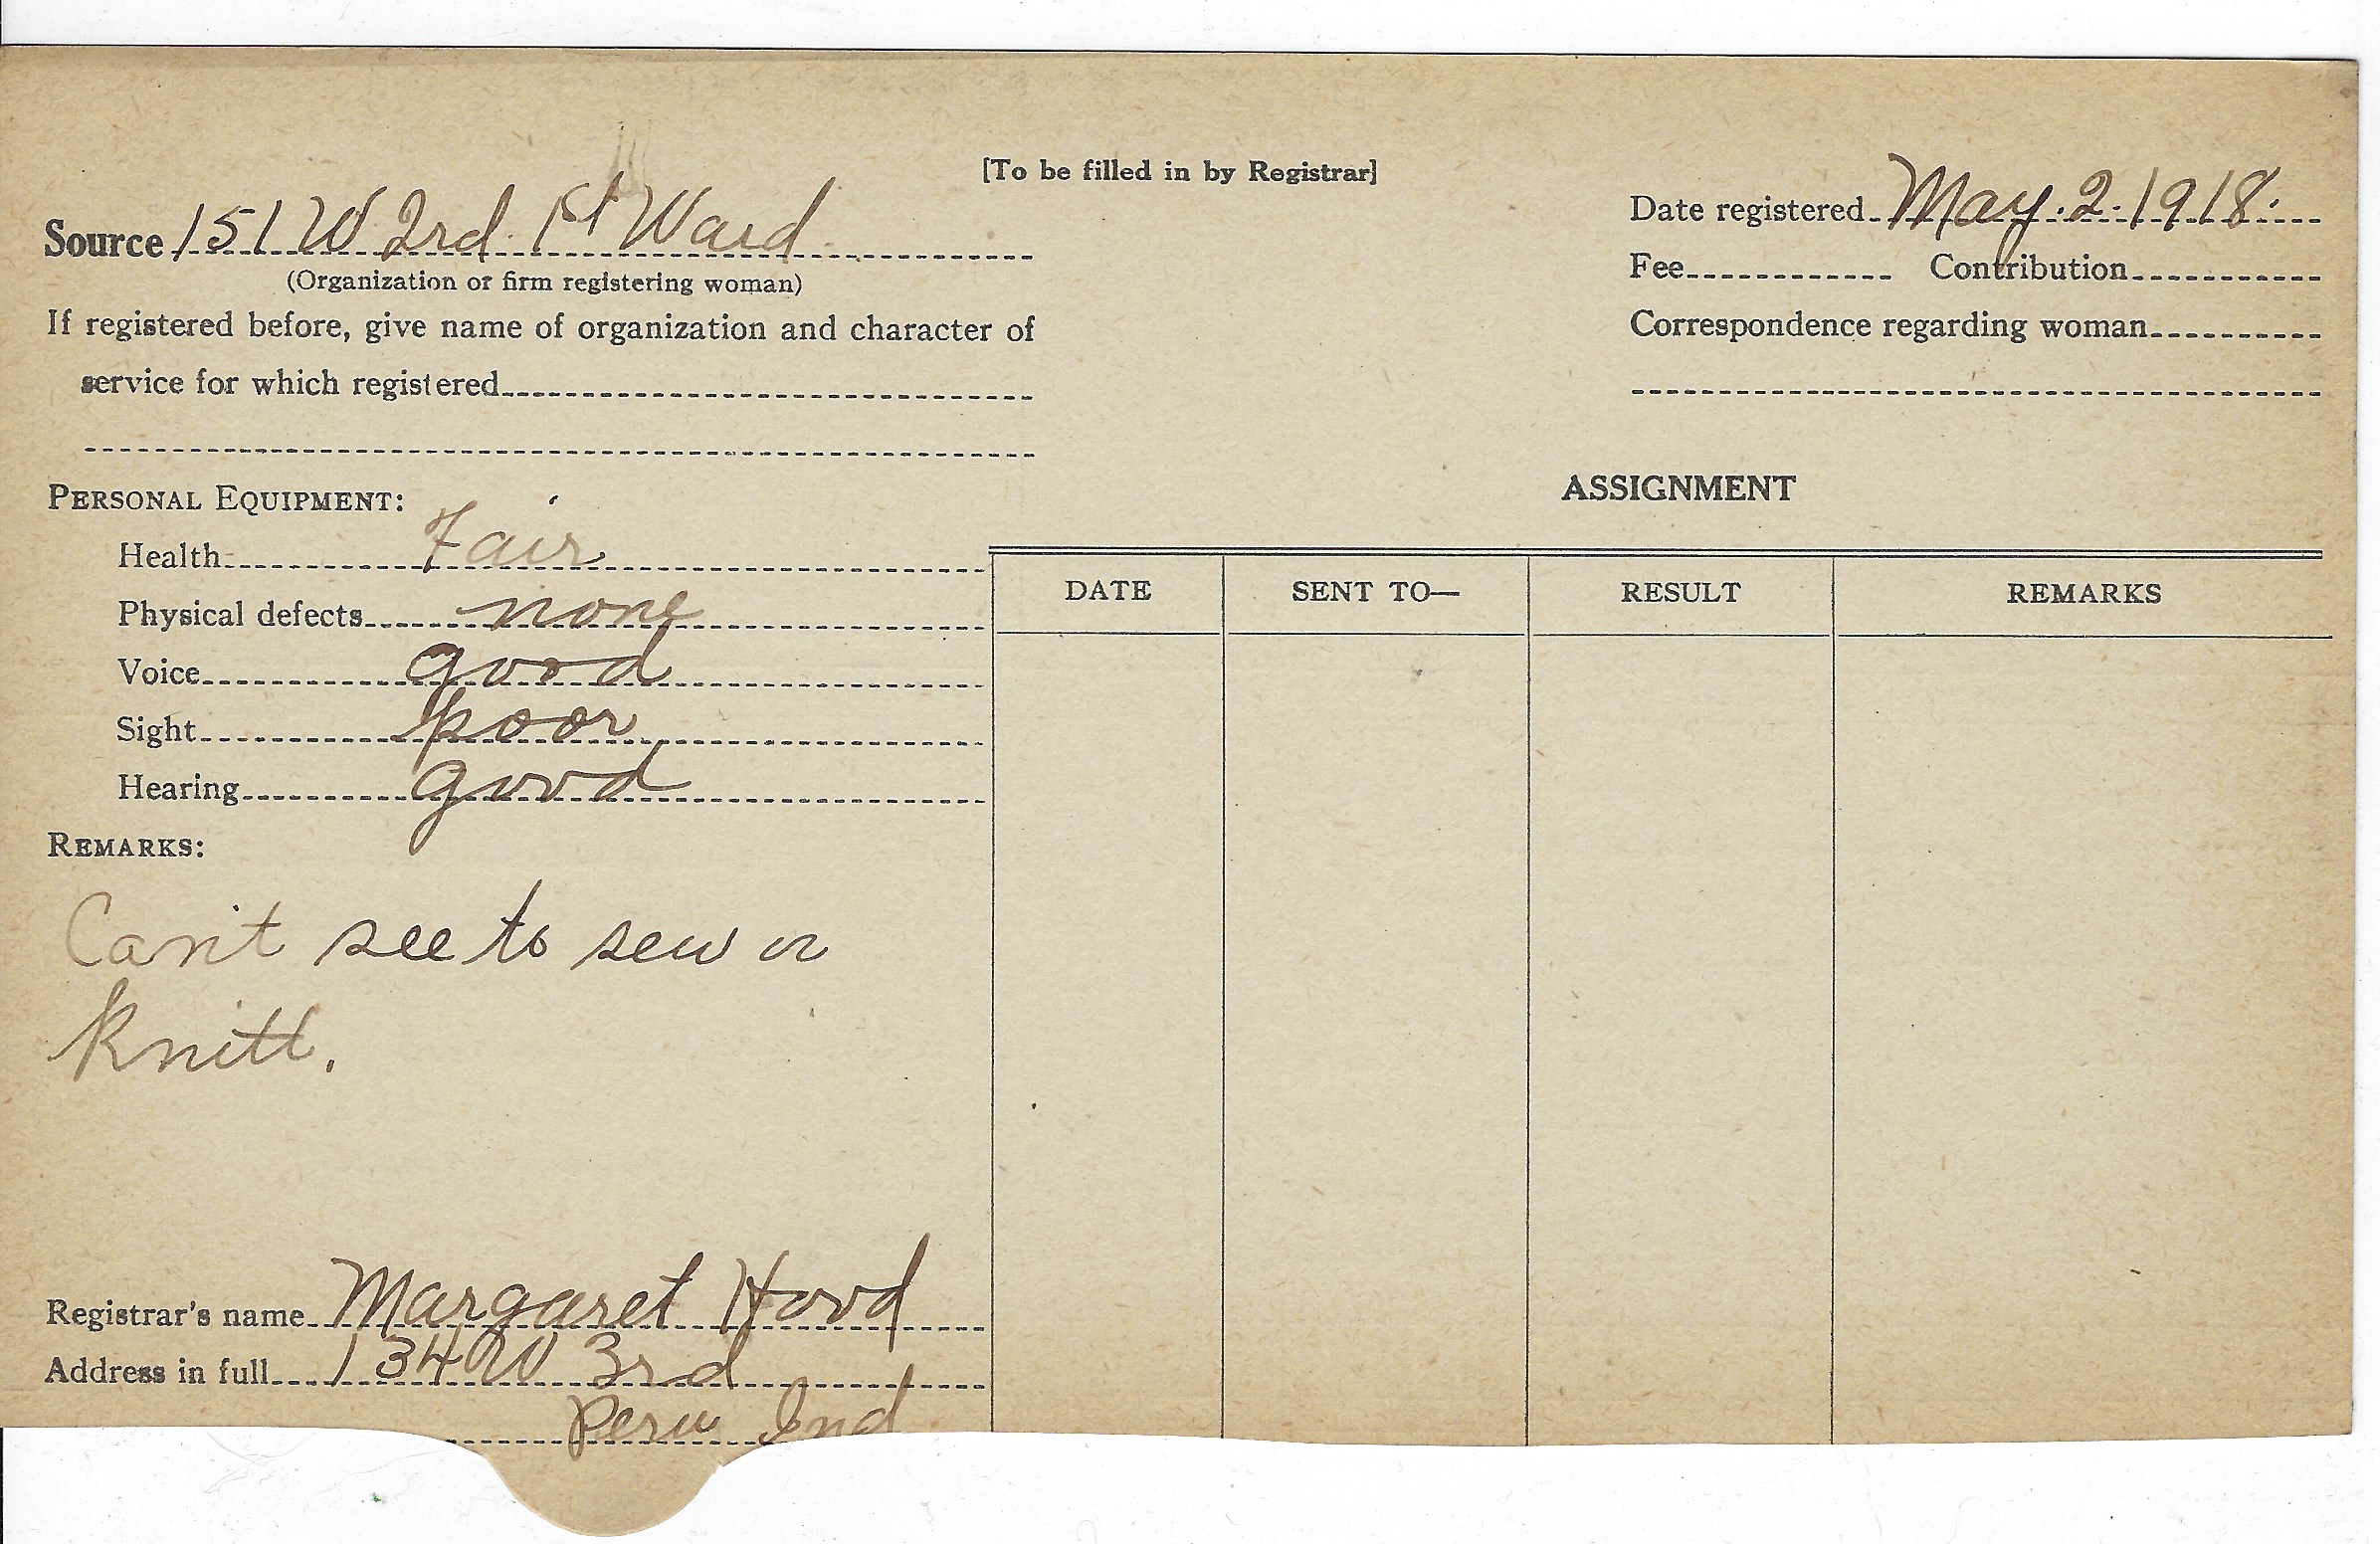 [To be filled in by Registrar]
Source 151 W 2rd. 1st Ward.
(Organization or firm registering woman)
If registered before, give name of organization and character of
service for which registered
Date registered May. 2. 1918.
Fee Contribution
Correspondence regarding woman
PERSONAL EQUIPMENT:
Health Fair
Physical defects none
Voice good
Sight poor
Hearing good
REMARKS:
Can't see to sew or
Knitt.
Registrar's name Margaret Hood
Address in full 134 W 3rd
Peru Ind
ASSIGNMENT
DATE SENT TO— RESULT REMARKS